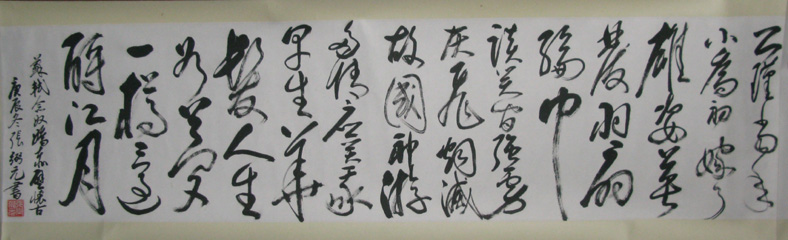 公瑾當年
小喬初嫁了
雄姿英
發羽扇
綸巾
談笑間强虜
灰飛烟滅
故國神游
多情應笑我
早生華
髮人生
如夢
一樽還
酹江月
蘇軾念奴嬌赤壁懷古
庚辰冬張元書